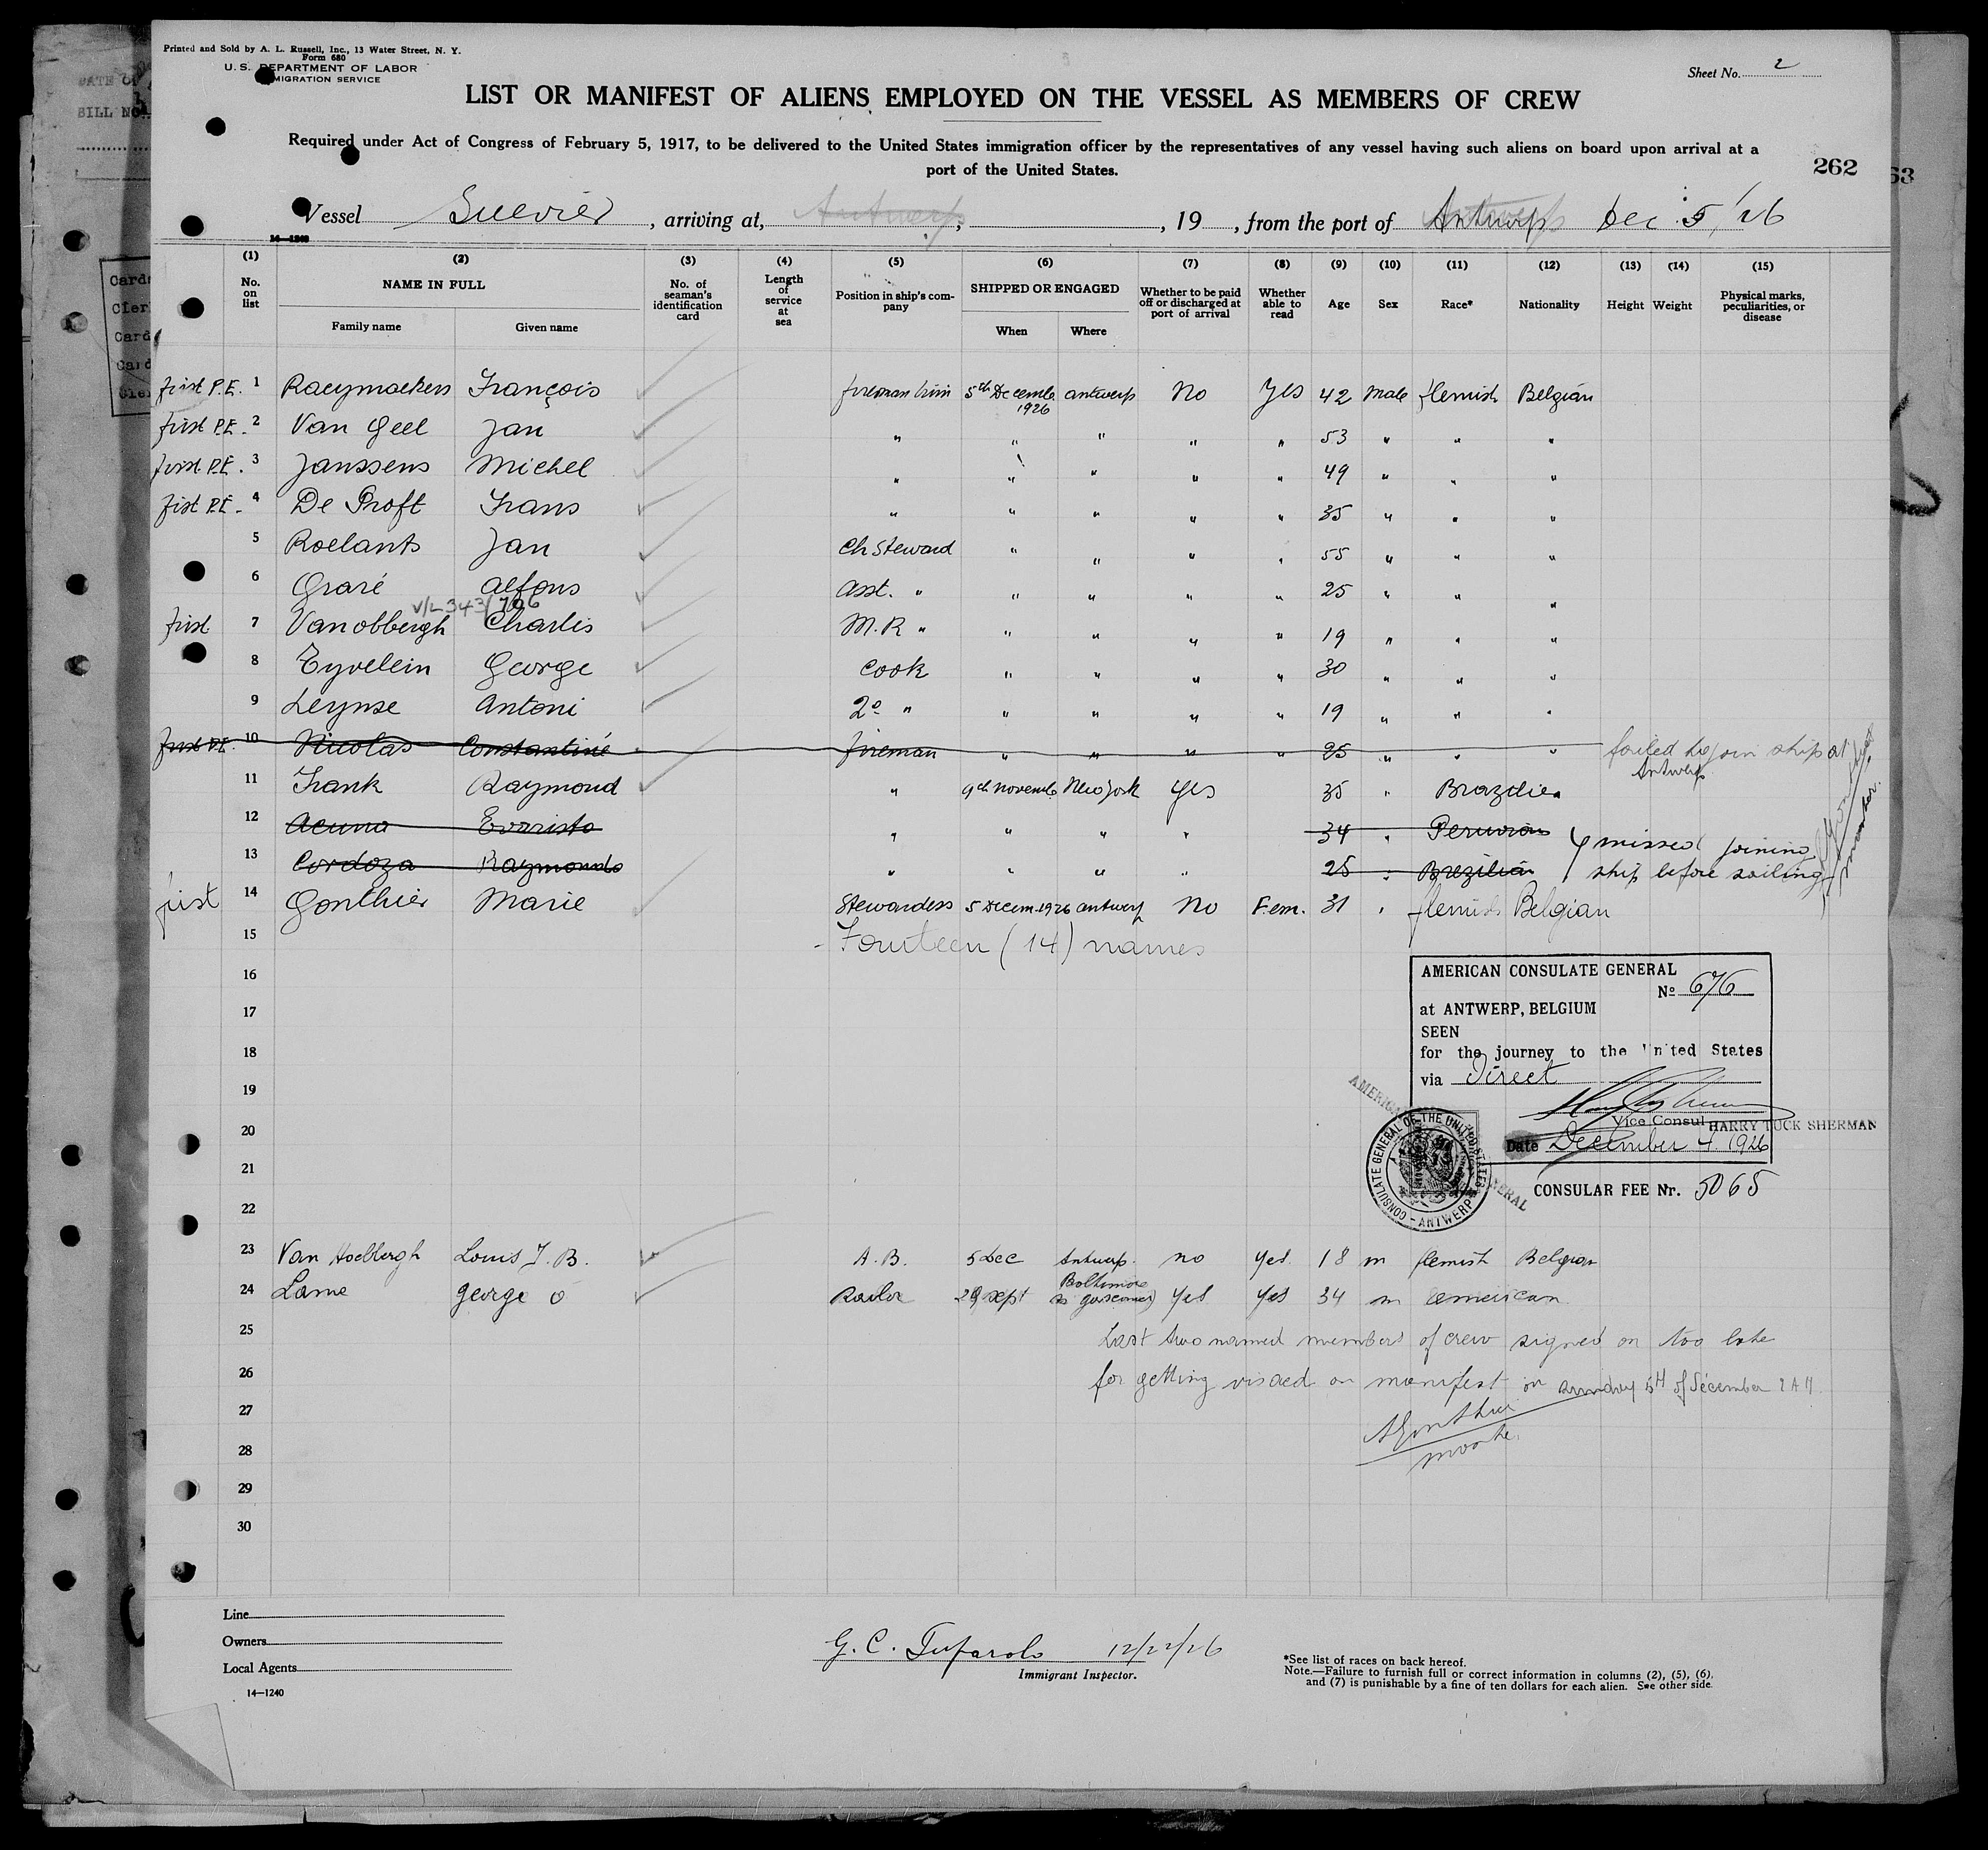 Printed and Sold by A. L. Russell, Inc., 13 Water Street, N. Y.
Form 680
U. S. DEPARTMENT OF LABOR
MIGRATION SERVICE
Sheet No. 2
LIST OR MANIFEST OF ALIENS EMPLOYED ON THE VESSEL AS MEMBERS OF CREW
Required under Act of Congress of February 5, 1917, to be delivered to the United States immigration officer by the representatives of any vessel having such aliens on board upon arrival at a
port of the United States.
262
63
DATE OF
BILL NO.
Vessel, arriving at, Antwerp, 19, from the port of Antwerp Dec 5/26
14—1240
(1) (2) (3) (4) (5) (6) (7) (8) (9) (10) (11) (12) (13) (14) (15)
No. on list NAME IN FULL Family name Given name No. of seaman's identification card Length of service at sea Position in ship's company SHIPPED OR ENGAGED When Where Whether to be paid off or discharged at port of arrival Whether able to read Age Sex Race* Nationality Height Weight Physical marks, peculiarities, or disease
first P.E. 1 Raeymaekers François fireman trim 5th Decemb 1926 antwerp No Yes 42 Male flemish Belgian
first P.E. 2 Van Geel Jan " " " " " 53 " " "
first P.E. 3 Janssens Michel " " " " " 49 " " "
fist P.E. 4 De Proft Frans " " " " " 35 " " "
5 Roelants Jan Ch Steward " " " " 55 " " "
6 Graré Alfons Asst. " " " " " 25 " " "
V/L 343/706
first 7 Vanobbergh Charlis M.R " " " " " 19 " " "
8 Eyvelein George Cook " " " " 30 " " "
9 Leynse Antoni 2º " " " " " 19 " " "
first P.E. 10 Nicolas Constantinie fireman " " " " 25 " " " failed to join ship at
Antwerp
11 Frank Raymond " 9th novemb New york Yes 35 " Brazilie
12 Acuna Evaristo " " " " 34 " Peruvian missed joining
13 Cordoza Raymondo " " " " 25 " Brezilian ship before sailing
first 14 Gonthier Marie Stewardess 5 Decem. 1926 antwerp No Fem. 31 " flemish Belgian
15 - Fourteen (14) names
16
17
18
19
20
21
22
AMERICAN CONSULATE GENERAL
No 676
at ANTWERP, BELGIUM
SEEN
for the journey to the United States
via Direct
Vice Consul HARRY TUCK SHERMAN
Date December 4. 1926
CONSULATE GENERAL OF THE UNITED STATES - ANTWERP
CONSULAR FEE Nr. 5065
23 Van Hoelbergh Louis J. B. A. B. 5 Dec Antwerp. no yes. 18 m flemish Belgian
24 Lame george O Sailor 29 sept Baltimore yes yes 34 m american
25 Last two named members of crew signed on too late
26 for getting visaed on manifest on sunday 5th of December
27
28
29
30
Line
Owners
Local Agents
14—1240
G. C. Tufarolo 12/22/26
Immigrant Inspector.
*See list of races on back hereof.
Note.—Failure to furnish full or correct information in columns (2), (5), (6),
and (7) is punishable by a fine of ten dollars for each alien. See other side.